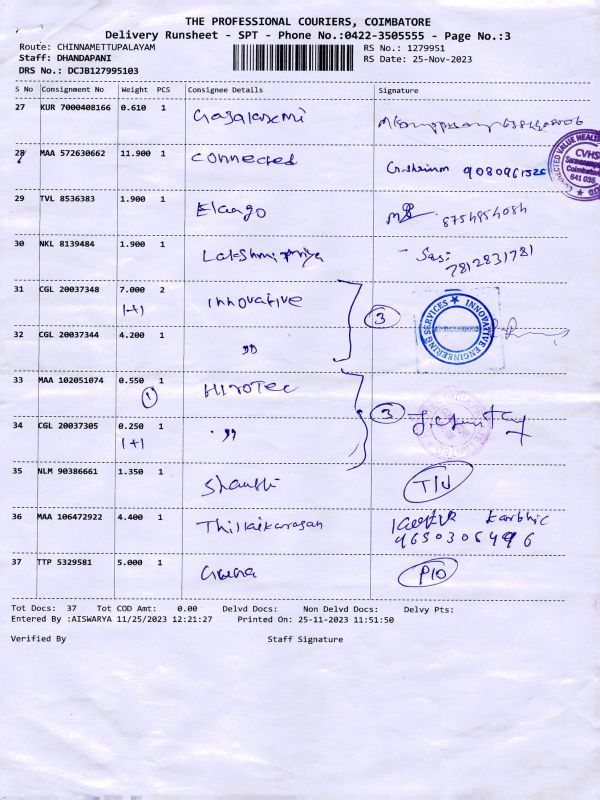 THE PROFESSIONAL COURIERS, COIMBATORE
Delivery Runsheet - SPT - Phone No.:0422-3505555 - Page No.:3
Route: CHINNAMETTUPALAYAM RS No.: 1279951
Staff: DHANDAPANI RS Date: 25-Nov-2023
DRS No.: DCJB127995103
S No Consignment No Weight PCS Consignee Details Signature
27 KUR 7000408166 0.610 1 Gajalaxmi
28 MAA 572630662 11.900 1 connected
CONNECTED VALUE HEALTH
CVHS
Coimbatore
641 035
29 TVL 8536383 1.900 1 Elango 8754954084
30 NKL 8139484 1.900 1 Lakshmi priya Sas:
7812831781
31 CGL 20037348 7.000 2 Innovative 3
1+1
INNOVATIVE ENGINEERING SERVICES
32 CGL 20037344 4.200 1 ,,
33 MAA 102051074 0.550 1 Hirotec
1 3
34 CGL 20037305 0.250 1 ,,
1+1
35 NLM 90386661 1.350 1 Shanthi
36 MAA 106472922 4.400 1 Thillaikarasan Karthic
37 TTP 5329581 5.000 1
Tot Docs: 37 Tot COD Amt: 0.00 Delvd Docs: Non Delvd Docs: Delvy Pts:
Entered By :AISWARYA 11/25/2023 12:21:27 Printed On: 25-11-2023 11:51:50
Verified By Staff Signature